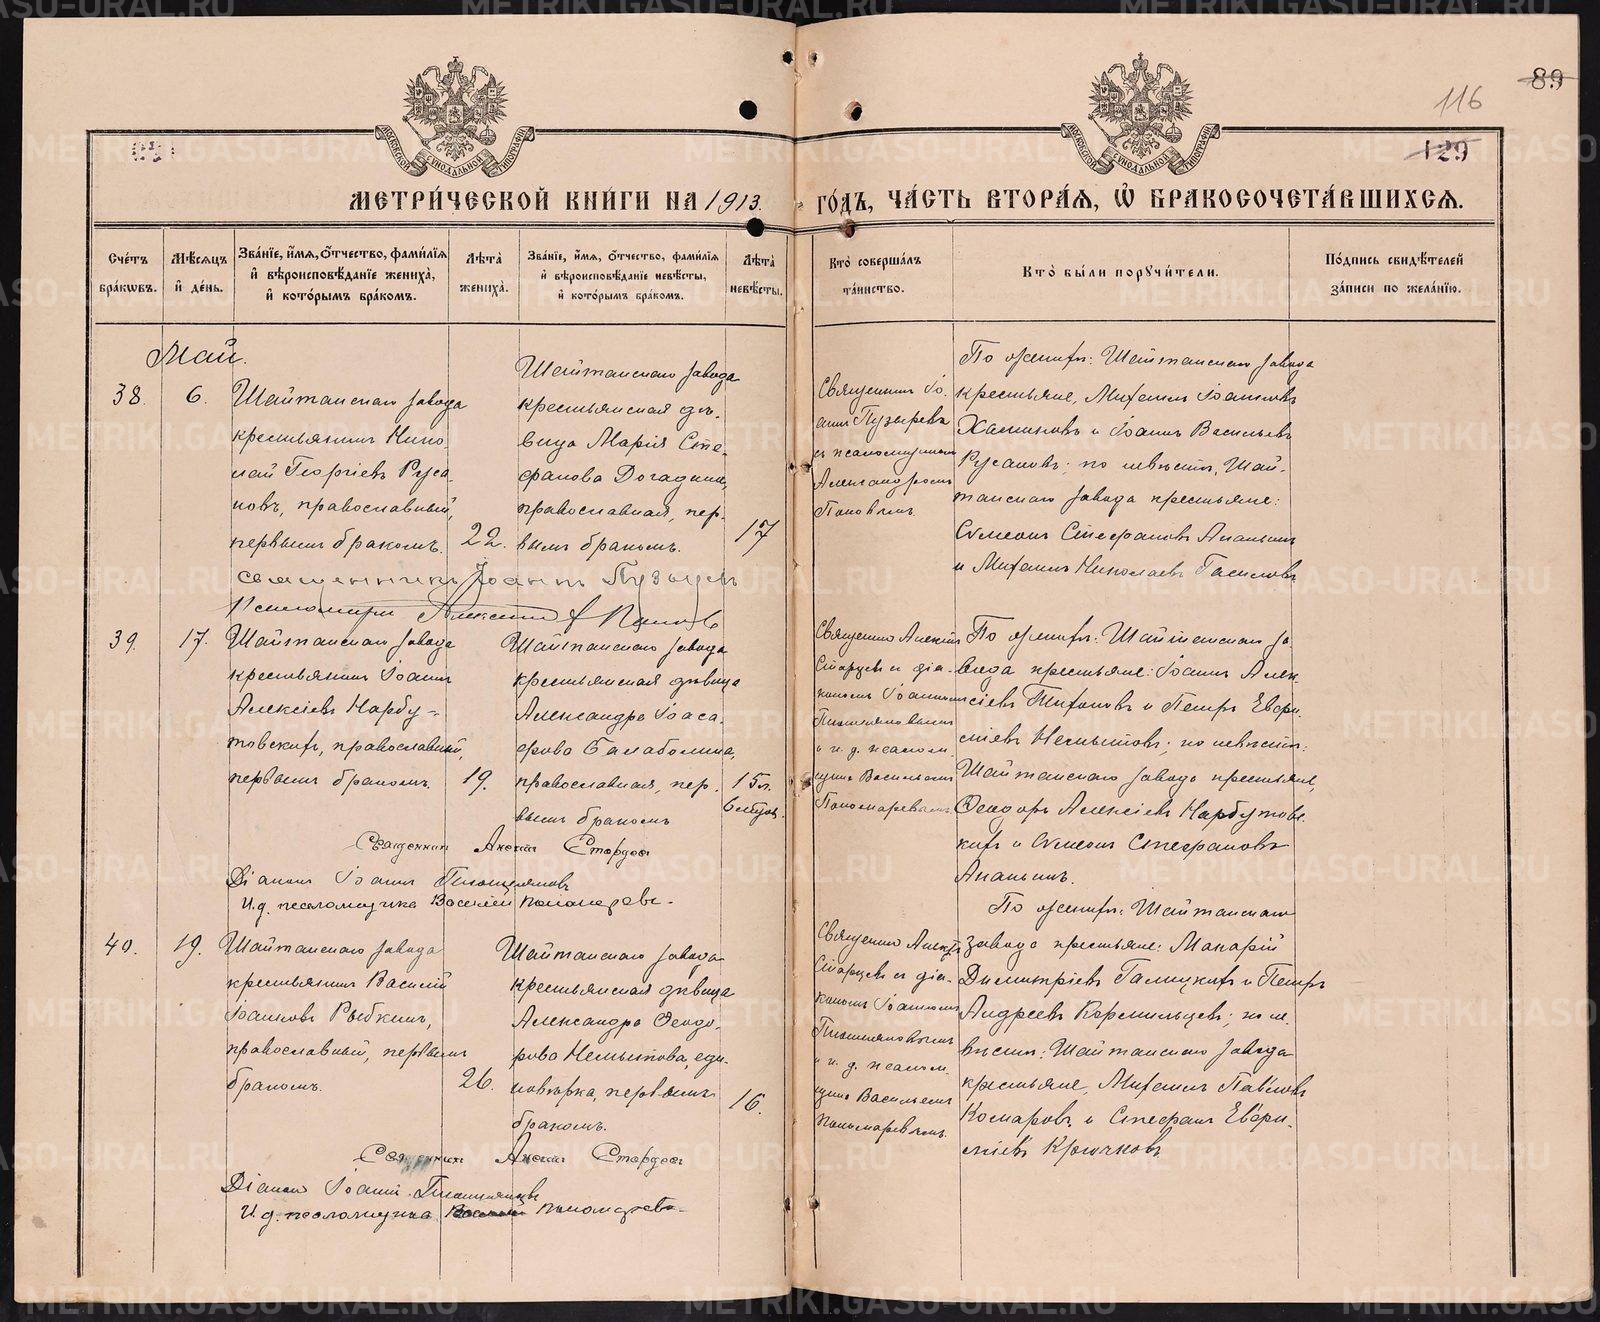 116
89
129
МЕТРИ́ЧЕСКОЙ КНИ́ГИ НА 1913.
ГО́ДЪ, ЧА́СТЬ ВТОРА́Я, Ѡ҆ БРАКОСОЧЕТА́ВШИХСЯ.
Сче́тъ бра́кѡвъ.
Мѣ́сяцъ и҆ де́нь.
Зва́нїе, и҆́мя, ѻ҆́тчество, фами́лїя
и҆ вѣроисповѣ́данїе жениха̀,
и҆ кото́рымъ бра́комъ.
Лѣта̀ жениха̀.
Зва́нїе, и҆́мя, ѻ҆́тчество, фами́лїя
и҆ вѣроисповѣ́данїе невѣ́сты,
и҆ кото́рымъ бра́комъ.
Лѣта̀ невѣ́сты.
Кто̀ соверша́лъ
та́инство.
Кто̀ бы́ли порꙋчи́тели.
По́дпись свидѣ́телей
за́писи по жела́нїю.
Май.
38.
6.
Шайтанскаго завода
крестьянинъ Нико-
лай Георгіевъ Руса-
новъ, православный,
первымъ бракомъ.
22.
Шайтанскаго завода
крестьянская дѣ-
вица Марія Сте-
фанова Догадина,
православная, пер-
вымъ бракомъ.
17
Священникъ Іо-
аннъ Пузыревъ
съ псаломщикомъ
Александромъ
Поповымъ
По женихѣ: Шайтанскаго завода
крестьяне, Михаилъ Іоанновъ
и Іоаннъ Васильевъ
Русановъ; по невѣстѣ: Шай-
танскаго завода крестьяне:
Сѵмеонъ Стефановъ Ананьинъ
и Михаилъ Николаевъ Гасиловъ
священникъ Іоаннъ Пузыревъ
Псаломщикъ Александръ Поповъ
39.
17.
Шайтанскаго завода
крестьянинъ Іоаннъ
Алексіевъ Нарбу-
товскихъ, православный,
первымъ бракомъ.
19.
Шайтанскаго завода
крестьянская дѣвица
Александра Іоаса-
фова Балаболина,
православная, пер-
вымъ бракомъ
15 л.
Священникъ Алексій
Старцевъ съ діа-
кономъ Іоанномъ
и и. д. псалом-
щика Васильемъ
Пономаревымъ
По женихѣ: Шайтанскаго за-
вода крестьяне: Іоаннъ Алек-
сіевъ Тихоновъ и Петръ Евфи-
міевъ Немытовъ; по невѣстѣ:
Шайтанскаго завода крестьяне,
Ѳеодоръ Алексіевъ Нарбутовс-
кихъ и Сѵмеонъ Стефановъ
Ананьинъ.
Священникъ Алексій Старцевъ
Діаконъ Іоаннъ
И. д. псаломщика Василій Пономаревъ.
40.
19.
Шайтанскаго завода
крестьянинъ Василій
Іоанновъ Рыбкинъ,
православный, первымъ
бракомъ.
26.
Шайтанскаго завода
крестьянская дѣвица
Александра Ѳеодо-
рова Немытова, еди-
новѣрка, первымъ
бракомъ.
16.
Священникъ Алексій
Старцевъ съ діа-
кономъ Іоанномъ
и и. д. псалом-
щика Васильемъ
Пономаревымъ.
По женихѣ: Шайтанскаго
завода крестьяне: Макарій
Димитріевъ Галицкихъ и Петръ
Андреевъ Кормильцевъ; по не-
вѣстѣ: Шайтанскаго завода
крестьяне, Михаилъ Павловъ
Комаровъ и Стефанъ Евфи-
міевъ Крючковъ
Священникъ Алексій Старцевъ
Діаконъ Іоаннъ
И. д. псаломщика Василій Пономаревъ